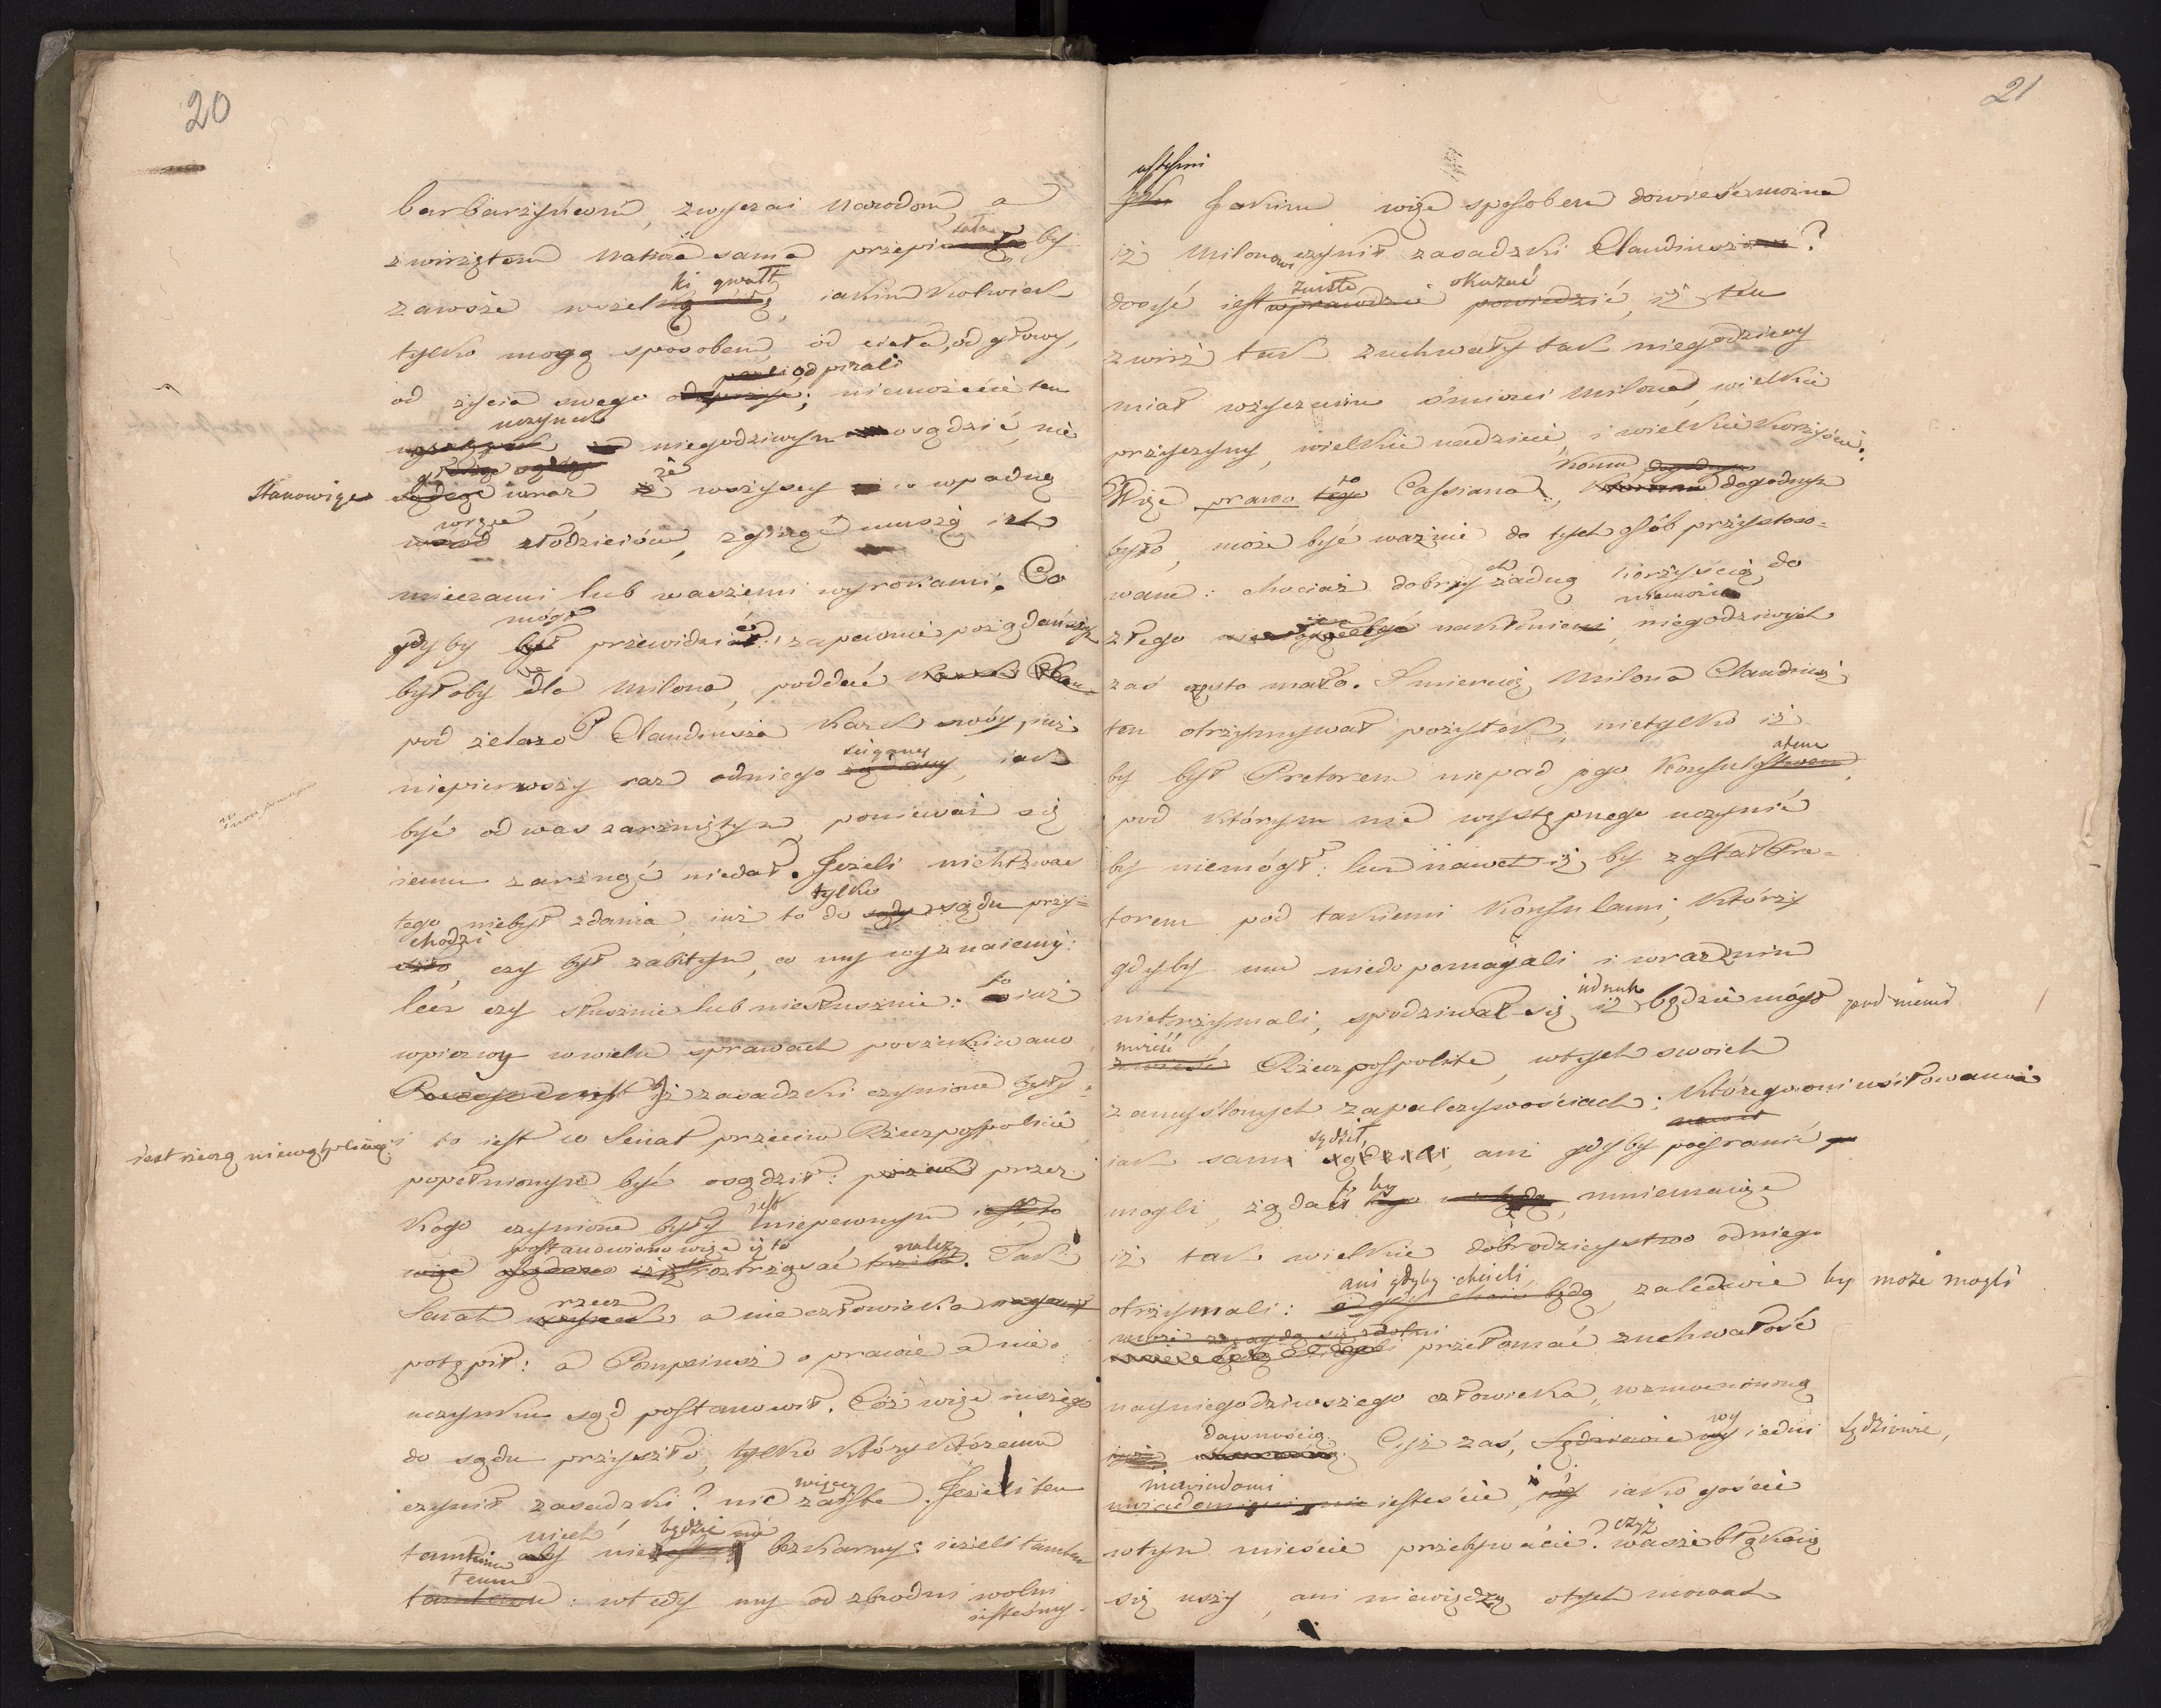 20
barbarzyńcom, zwyczai narodom, a
zwirzętom natura sama przepisała by
zawsze wszelki gwałt, iakim kolwiek
tylko mogą sposobem, od ciała, od głowy,
od życia swego odpirali; niemożecie ten
uczynek niegodziwym osądzić, nie
Stanowiąc wraz, że wszyscy co wpadną
w ręce złodzieiów, zginąć muszą ich
mieczami lub waszemi wyrokami. Co
gdyby mógł przewidzieć: zapewnie pożądańszą
byłoby dla Milona, poddać
pod żelazo P. Claudiusza kark swóy, już
niepierwszy raz odniego ścigany, iak
być od was zarzniętym, ponieważ się
iemu zarznąć niedał. Jeżeli nicht zwas
tego niebył zdania, iuż to do tylko sądu przy-
chodzi czy był zabitym, co my wyznaiemy:
lecz czy słusznie lub niesłusznie: to iuż
wpierwy wwielu sprawach poszukiwano
iż zasadzki czynione były
iest rzeczą niewątpliwą: i to iest co Senat przeciw Rzeczpospolitéi
popełnionym być osądził: przez
kogo czynione były iest niepewnym
postanowiono więc iż to roztrząsać należy. Tak
Senat rzecz a nie człowieka
potępił: a Pompeiusz o prawie a nie o
uczynku sąd postanowił. Cóż więc inszego
do sądu przyszło, tylko który któremu
czynił zasadzki? nic więcy zaiste. Jeżeli ten
tamtemu niech niebędzie bezkarny: ieżeli tamten
temu: wtedy my od zbrodni wolni
iesteśmy.
21
Jakim więc sposobem dowieść można
iż Milonowi czynił zasadzki Claudiusz?
dosyć iest zaiste okazać, iż ten
zwirz tak zuchwały tak niegodziwy
miał wżyczeniu śmierci Milona, wielkie
przyczyny, wielkie nadzieie, i wielkie korzyści.
Więc prawo to Cassiana: komu dogodnym
było, może być ważnie do tych osób przystoso-
wane: chociaż dobrzy żadną korzyścią do
złego nakłonieni, niegodziwych
zaś często mało. Śmiercią Milona Claudiusz
ten otrzymywał pożytek, nietylko iż
by był Pretorem niepod jego Konsulatem,
pod którym nic występnego uczynić
by niemógł: lecz nawet iż by został Pre-
torem pod takiemi Konsulami, którzy
gdyby mu niedopomagali i wrazznim
nietrzymali, spodziwał się iednak iż będzie mógł pod niemi
Rzeczpospolite, wtych swoich
zamyślonych zapalczywościach: którego oni usiłowania
iak sam sądził, ani gdyby poigranić
mogli, żądali by mniemaiąc
iż tak wielkie dobrodzieystwo odniego
otrzymali: ani gdyby chcieli, zaledwie by może mogli
przełamać zuchwałość
nayniegodziwszego człowieka, wzmocnioną
dawnością. Czyż zaś, wy iedni Sędziowie,
niewiadomi iesteście, iako goście
wtym mieście przebywacie? czyż wasze błąkaią
się uszy, ani niewiedzą otych mowach